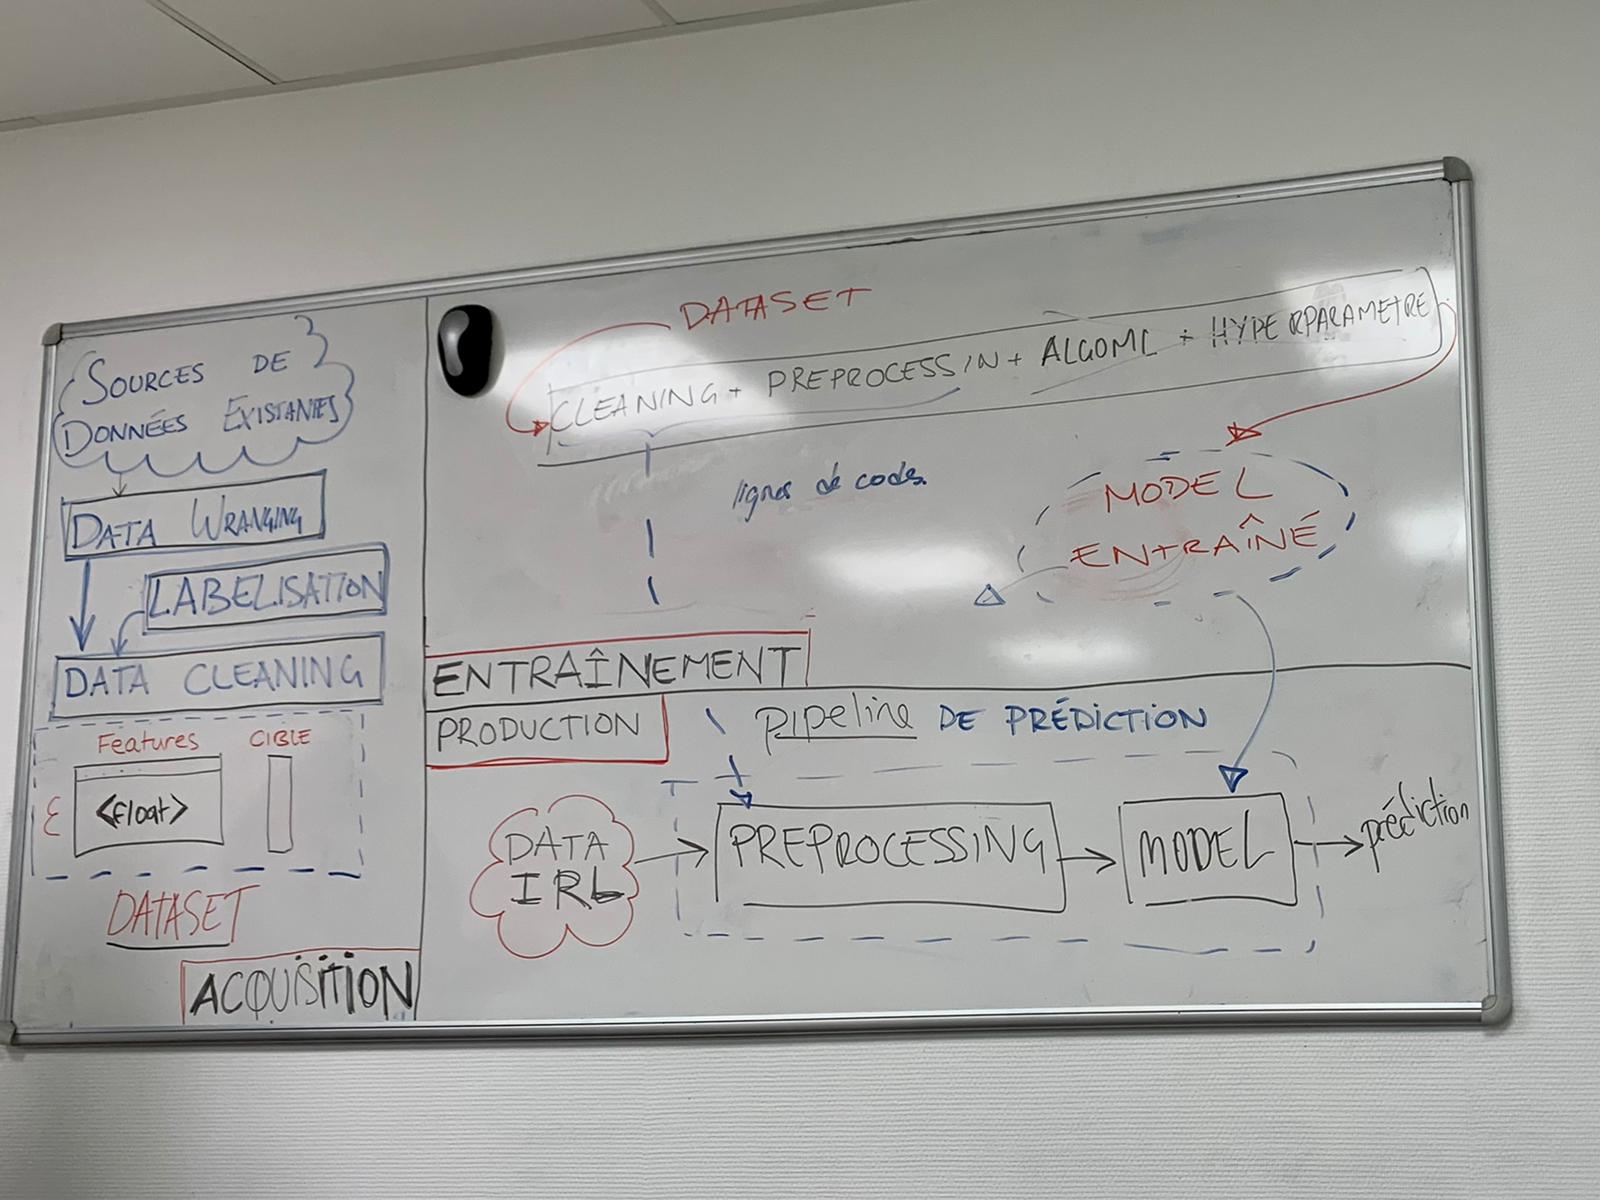 SOURCES DE
DONNÉES EXISTANTES
DATA WRANGING
LABELISATION
DATA CLEANING
Features CIBLE
<float>
DATASET
ACQUISITION
DATASET
CLEANING + PREPROCESSIN + ALGOML + HYPERPARAMETRE
lignes de codes
MODEL
ENTRAÎNÉ
ENTRAÎNEMENT
PRODUCTION
pipeline DE PRÉDICTION
DATA
IRL
PREPROCESSING
MODEL
prédiction